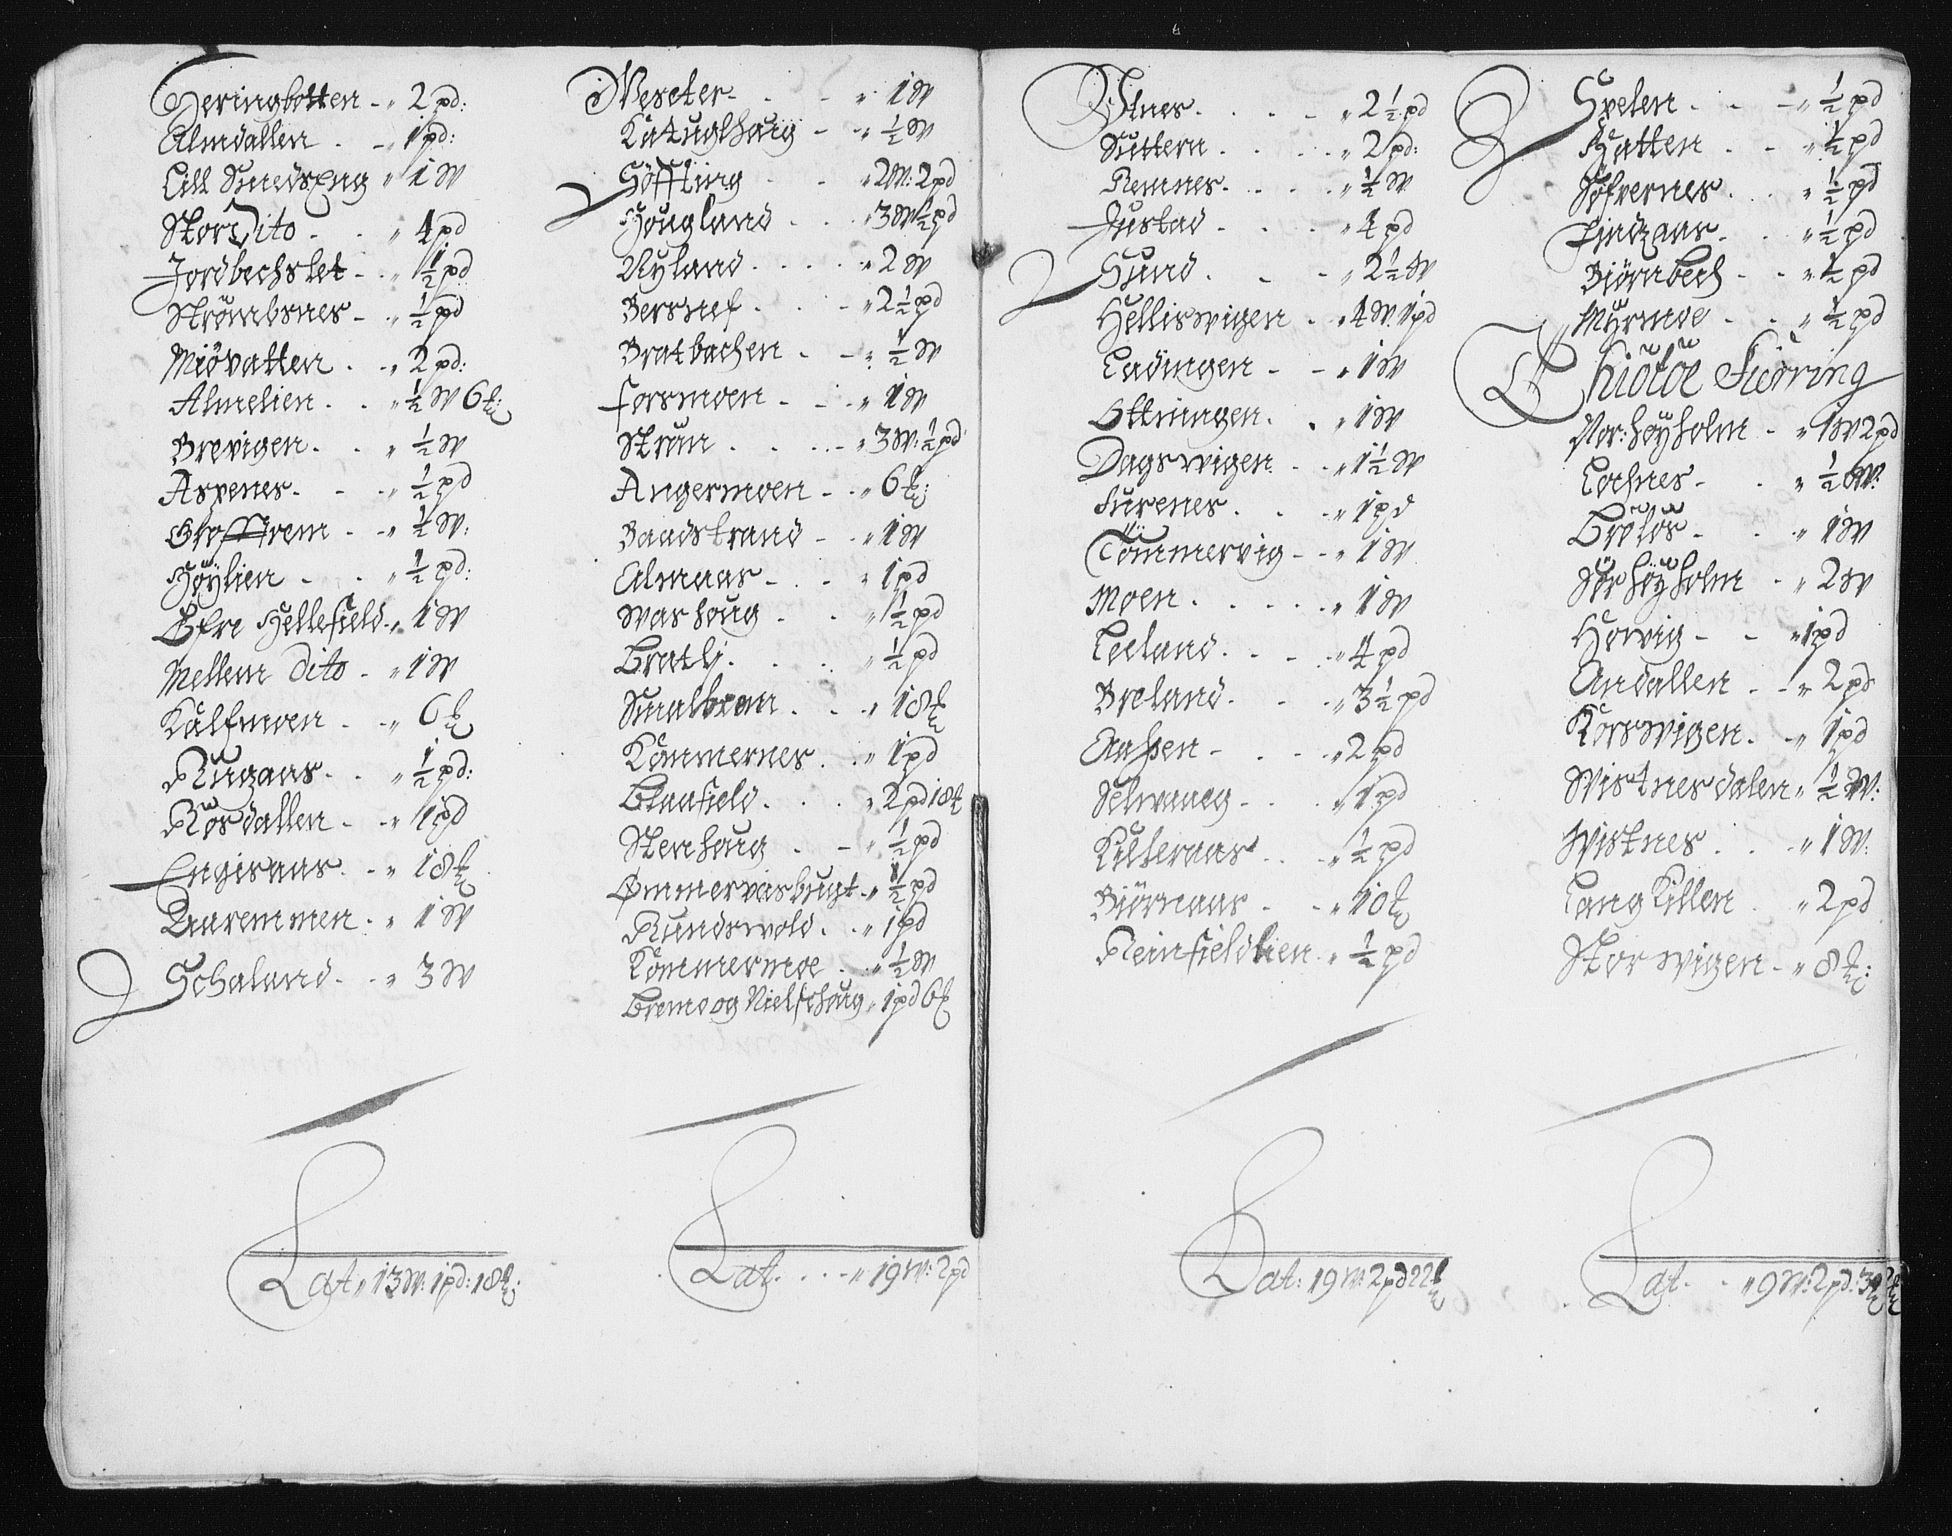 Jeringbotten - „ 2 pd:
Almdallen . - „ 1 pd:
Lill Smedseng „ 1 W
Stor Dito - . „ 4 pd
Jordbechslet - . „ 1½ pd
Strømbsnes - „ ½ pd
Miövatten . - „ 2 pd:
Almelien . . „ ½ W 6 ℔:
Brevigen . . „ ½ W
Aspenes . - . „ ½ pd
Groffrem - . „ ½ W:
Høÿlien - . „ ½ pd:
Öfre Hellefield . „ 1 W
Mellem Dito - „ 1 W
Kalfmoen . - „ 6 ℔
Rŭgaas . . „ ½ pd:
Rösdallen - - „ 1 pd
Engisaas . - „ 18 ℔
Daaremmen . „ 1 W
Schaland - . „ 3 W
Lat „ 13 W: 1 pd: 18 ℔:
Wester - . - „ 1 W
Katuglhaŭg - - „ ½ W
Söffting - . - „ 2 W: 2 pd
Hougland . . . „ 3 W ½ pd
Nÿland . . . . „ 2 W
Bersnef . . . „ 2½ pd
Bratbachen . - „ ½ W
Forsmoen - . . „ 1 W
Strŭm . . . „ 3 W: ½ pd
Angermoen - . „ 6 ℔:
Baadstrand - - „ 1 W
Almaas - . . „ 1 pd
Warhoug . . „ 1½ pd
Bratlj . . . . „ ½ pd
Smalbran . . „ 18 ℔
Kömmernes . . „ 1 pd
Blaafield . . . „ 2 pd 18 ℔
Stenhoug . - „ ½ pd
Ömmervasbugt . „ ½ pd
Rundswold . . „ 1 pd
Kömmermoe . . „ ½ W
Bremo og Nielshoug „ 1 pd 6 ℔
Lat . . . . „ 19 W: 2 pd
Utnes . . . - „ 2½ pd
Suttern . . . . „ 2 pd:
Remnes - . . . „ ½ W
Justad - . . . „ 4 pd
Sund . . - „ 2½ W
Helliswigen - „ 4 W 1 pd
Ladingen - - „ 1 W
Ottningen . . „ 1 W
Dagswigen . - „ 1½ W
Furenes . . . „ 1 pd
Tömmervig - - „ 1 W
Moen . . . . „ 1 W
Leeland . . - . „ 4 pd
Breland . . - „ 3½ pd
Aaspen - . . - „ 2 pd
Selwaag - . . „ 1 pd
Kilteraas . . „ ½ pd
Biörnaas . - „ 10 ℔
Reinfieldlien . „ ½ pd
Lat: 19 W: 2 pd 22 ℔
Svelen . . - „ ½ pd
Hatten . - „ ½ pd
Söfvernes . . „ ½ pd
Lindzaas - . „ ½ pd
Biörnbech - - „ ½ pd
Mÿrmoe - . „ ½ pd
Thiötöe Fierring
Nor: høÿholm - „ 1 W 2 pd
Lochnes - . „ ½ W:
Brötös - . . „ 1 W
Sör höÿholm - „ 2 W
Howig - - „ 1 pd
Andallen . - „ 2 pd
Korswigen . - „ 1 pd
Wistnesdalen „ ½ W:
Wistnes . . - „ 1 W:
Lang Killen . „ 2 pd
Storwigen - „ 8 ℔:
Lat - . „ 9 W: 2 pd: 3 ℔